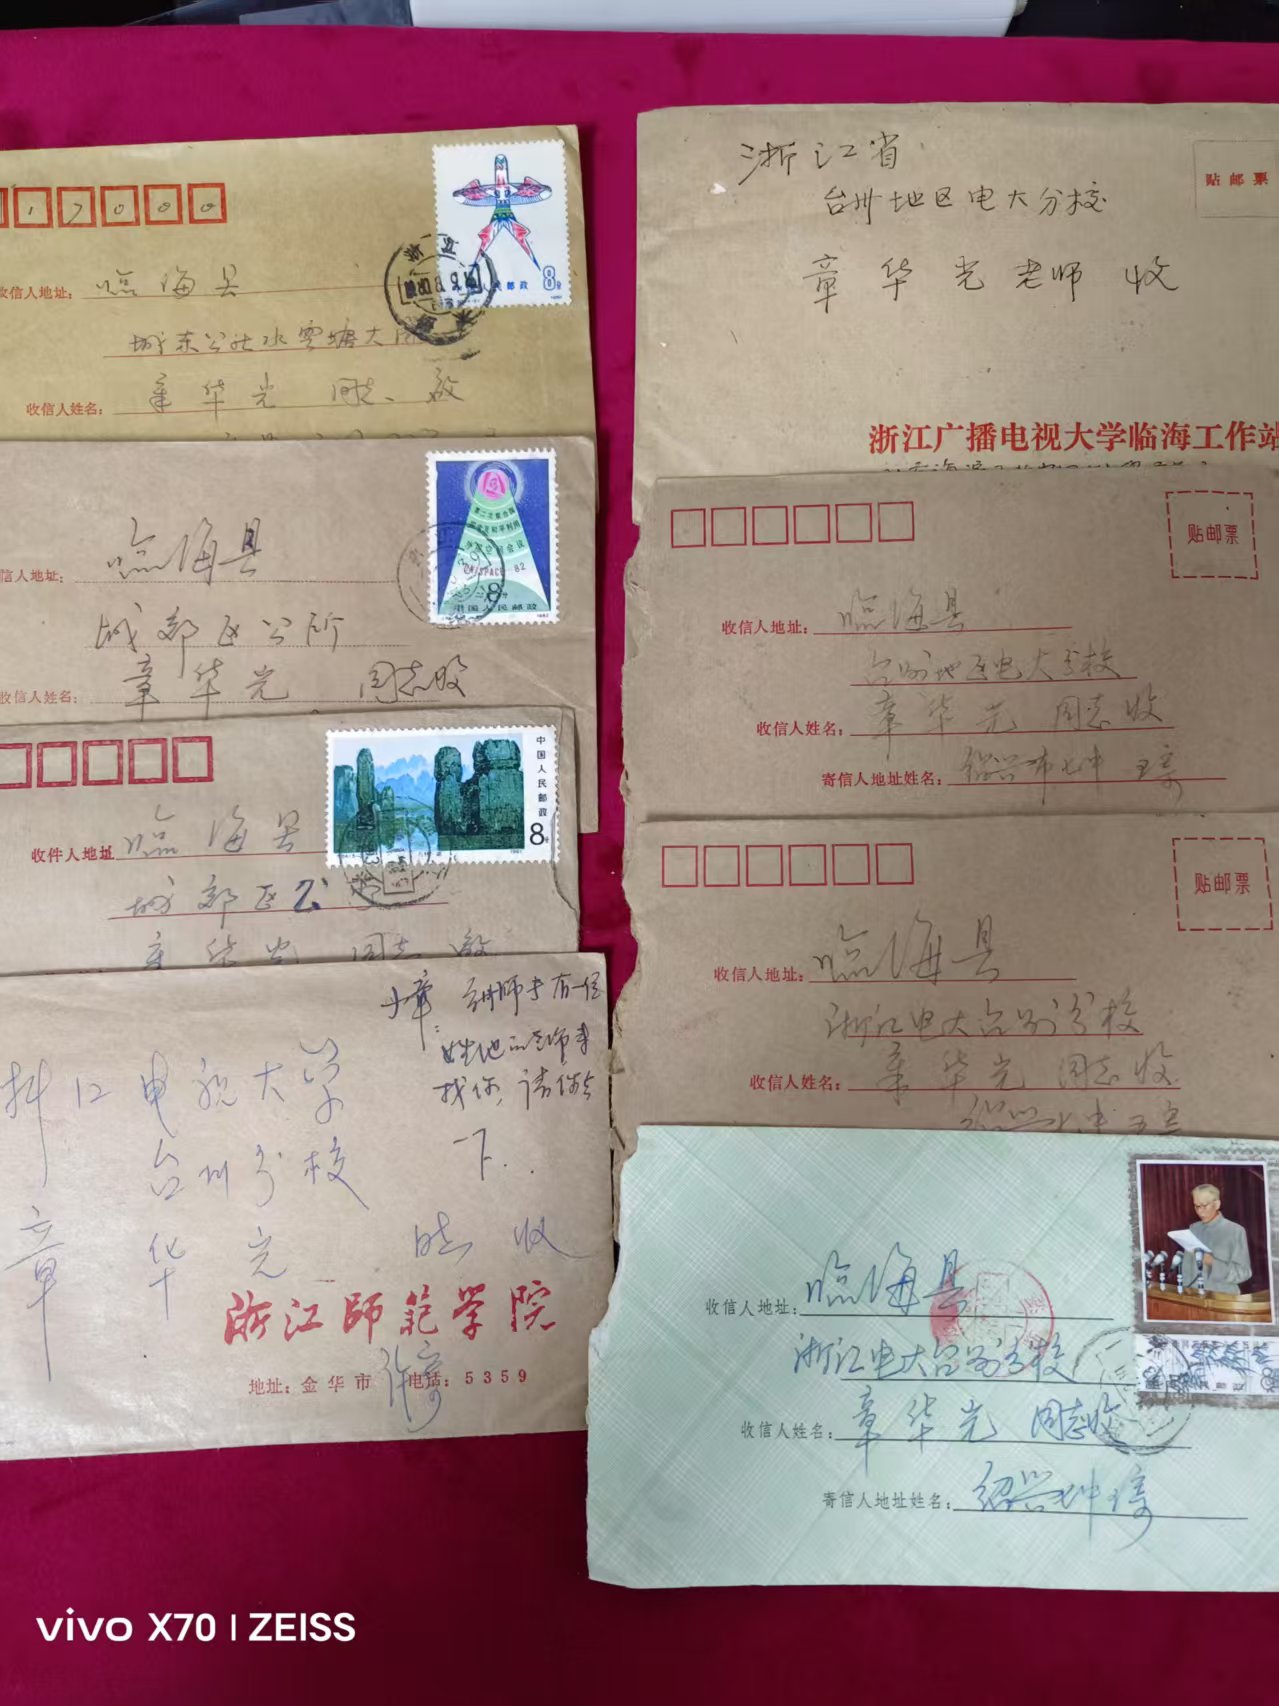 17000
8分
中国人民邮政
收信人地址：临海县
城东公社水云塘大队
收信人姓名：章华光 同志 启
第二次联合国
探索及和平利用
外层空间会议
UNISPACE-82
8分
中国人民邮政
信人地址：临海县
城郊区公所
收信人姓名：章华光 同志收
中国人民邮政
8分
收件人地址 临海县
城郊区公
章华光 同志 启
小章：台州师专有一位
姓池的老师来
找你，请你会
一下..
浙江电视大学
台州分校
章华光 收
浙江师范学院
地址：金华市 电话：5359
浙江省
贴邮票
台州地区电大分校
章华光老师 收
浙江广播电视大学临海工作站
贴邮票
收信人地址：临海县
台州地区电大分校
收信人姓名：章华光 同志收
寄信人地址姓名：绍兴市七中
贴邮票
收信人地址：临海县
浙江电大台州分校
收信人姓名：章华光 同志收
收信人地址：临海县
浙江电大台州分校
收信人姓名：章华光 同志收
寄信人地址姓名：绍兴七中
vivo X70 | ZEISS